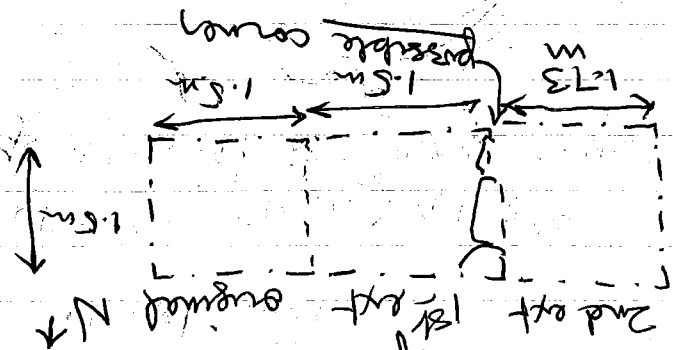 2nd ext 1st ext original N
1.5m
1.73 m
1.5m
1.5m
possible corner